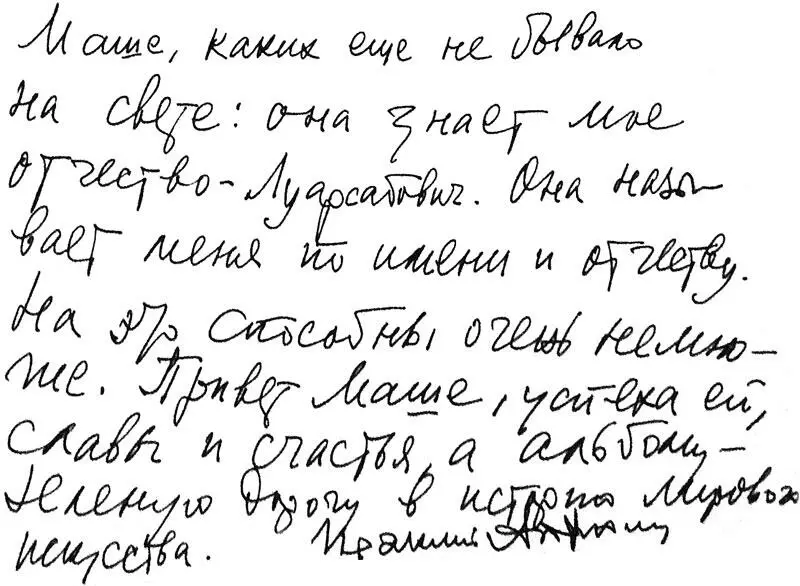 Маше, каких еще не бывало
на свете: она знает мое
отчество - Луарсабович. Она назы-
вает меня по имени и отчеству.
На это способны очень немно-
гие. Привет Маше, успеха ей,
славы и счастья, а альбому -
зеленую дорогу в историю мирового
искусства. Ираклий Андроников